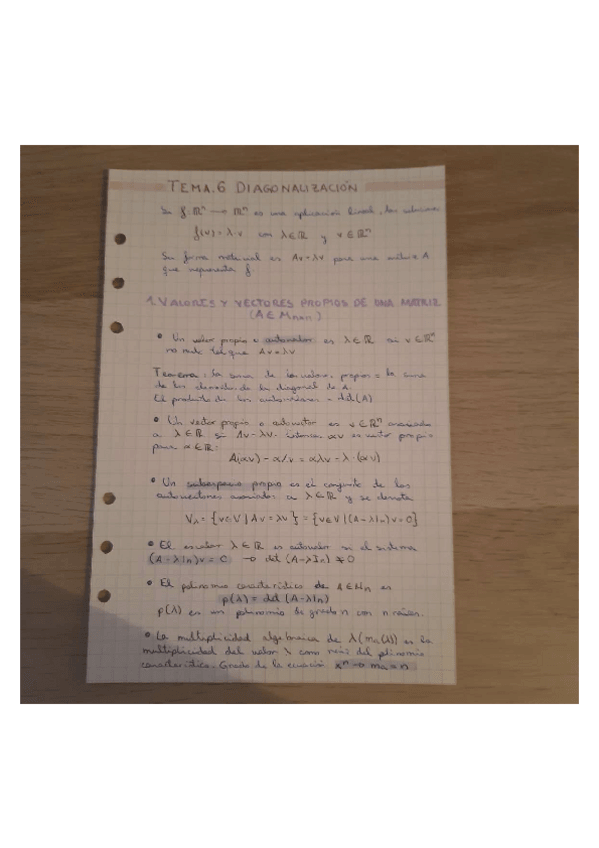 TEMA.6 DIAGONALIZACIÓN
Sea f: ℝⁿ → ℝⁿ es una aplicación lineal, los
f(v) = λ·v con λ∈ℝ y v∈ℝⁿ
Su forma matricial es Av=λv para una matriz A
que representa f.
1.VALORES Y VECTORES PROPIOS DE UNA MATRIZ
(A∈Mn×n)
• Un valor propio o autovalor es λ∈ℝ si v∈ℝⁿ
no nulo tal que Av=λv
Teorema: la suma de los valores propios = la suma
de los elementos de la diagonal de A.
El producto de los autovalores = det(A)
• Un vector propio o autovector es v∈ℝⁿ asociado
a λ∈ℝ si Av=λv. entonces αv es vector propio
para α∈ℝ:
A(αv) = αAv = αλv = λ·(αv)
• Un subespacio propio es el conjunto de los
autovectores asociados a λ∈ℝ y se denota
Vλ = {v∈V | Av = λv} = {v∈V | (A-λIn)v=0}
• El escalar λ∈ℝ es autovalor si el sistema
(A-λIn)v=0 → det (A-λIn) ≠0
• El polinomio característico de A∈Mn es
p(λ) = det (A-λIn)
p(λ) es un polinomio de grado n con n raíces.
• La multiplicidad algebraica de λ(ma(λ)) es la
multiplicidad del valor λ como raíz del plinomio
característico. Grado de la ecuación xⁿ → ma = n